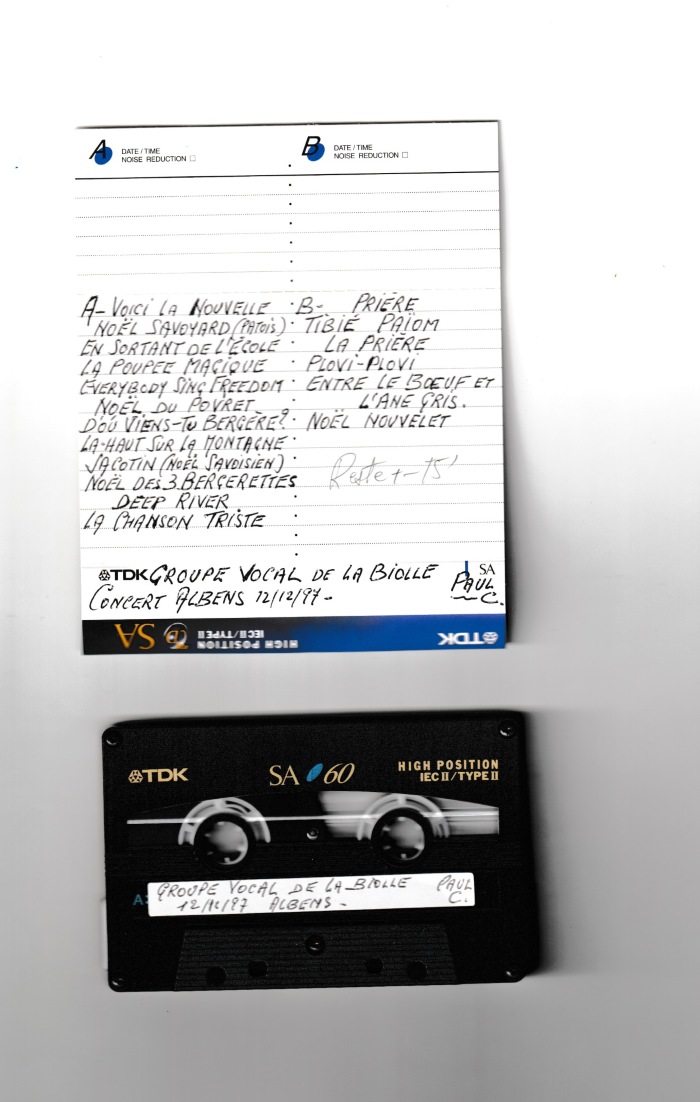 A DATE / TIME
NOISE REDUCTION
B DATE / TIME
NOISE REDUCTION
A- VOICI LA NOUVELLE
NOËL SAVOYARD (PATOIS)
EN SORTANT DE L'ÉCOLE
LA POUPEE MAGIQUE
EVERYBODY SING FREEDOM
NOËL DU POVRET
D'OÙ VIENS-TU BERGÈRE?
LA-HAUT SUR LA MONTAGNE
JACOTIN (NOËL SAVOISIEN)
NOËL DES 3 BERGERETTES
DEEP RIVER
LA CHANSON TRISTE
B- PRIÈRE
TIBIÉ PAÏOM
LA PRIÈRE
PLOVI-PLOVI
ENTRE LE BŒUF ET
L'ANE GRIS.
NOËL NOUVELET
Reste +- 15'
TDK GROUPE VOCAL DE LA BIOLLE SA
CONCERT ALBENS 12/12/97- PAUL C.
TDK HIGH POSITION IEC II/TYPE II SA
TDK SA 60 HIGH POSITION
IEC II/TYPE II
A GROUPE VOCAL DE LA BIOLLE PAUL
12/12/97 ALBENS- C.